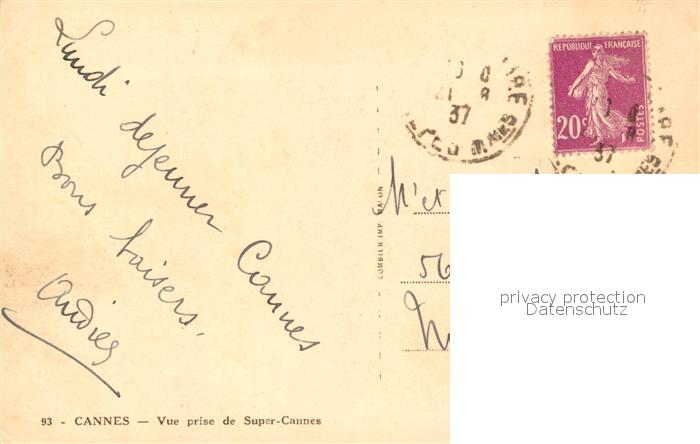 Lundi déjeuner Cannes
Bons baisers.
93 - CANNES — Vue prise de Super-Cannes
COMBIER IMP. MACON
REPUBLIQUE FRANÇAISE
20c
POSTES
37
M et
56
privacy protection
Datenschutz